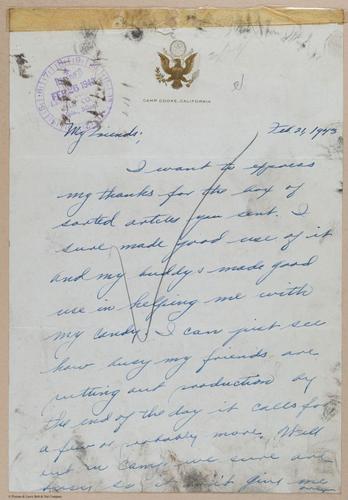 FEB 26 1943
CAMP COOKE, CALIFORNIA
My Friends; Feb 21, 1943
I want to express
my thanks for the box of
sorted articles you sent. I
sure made good use of it
and my buddy's made good
use in helping me with
my candy. I can just see
how busy my friends are
utting out roduction by
the end of the day it calls for
a few or robably more. Well
out in camp we sure are
busy so it
give me